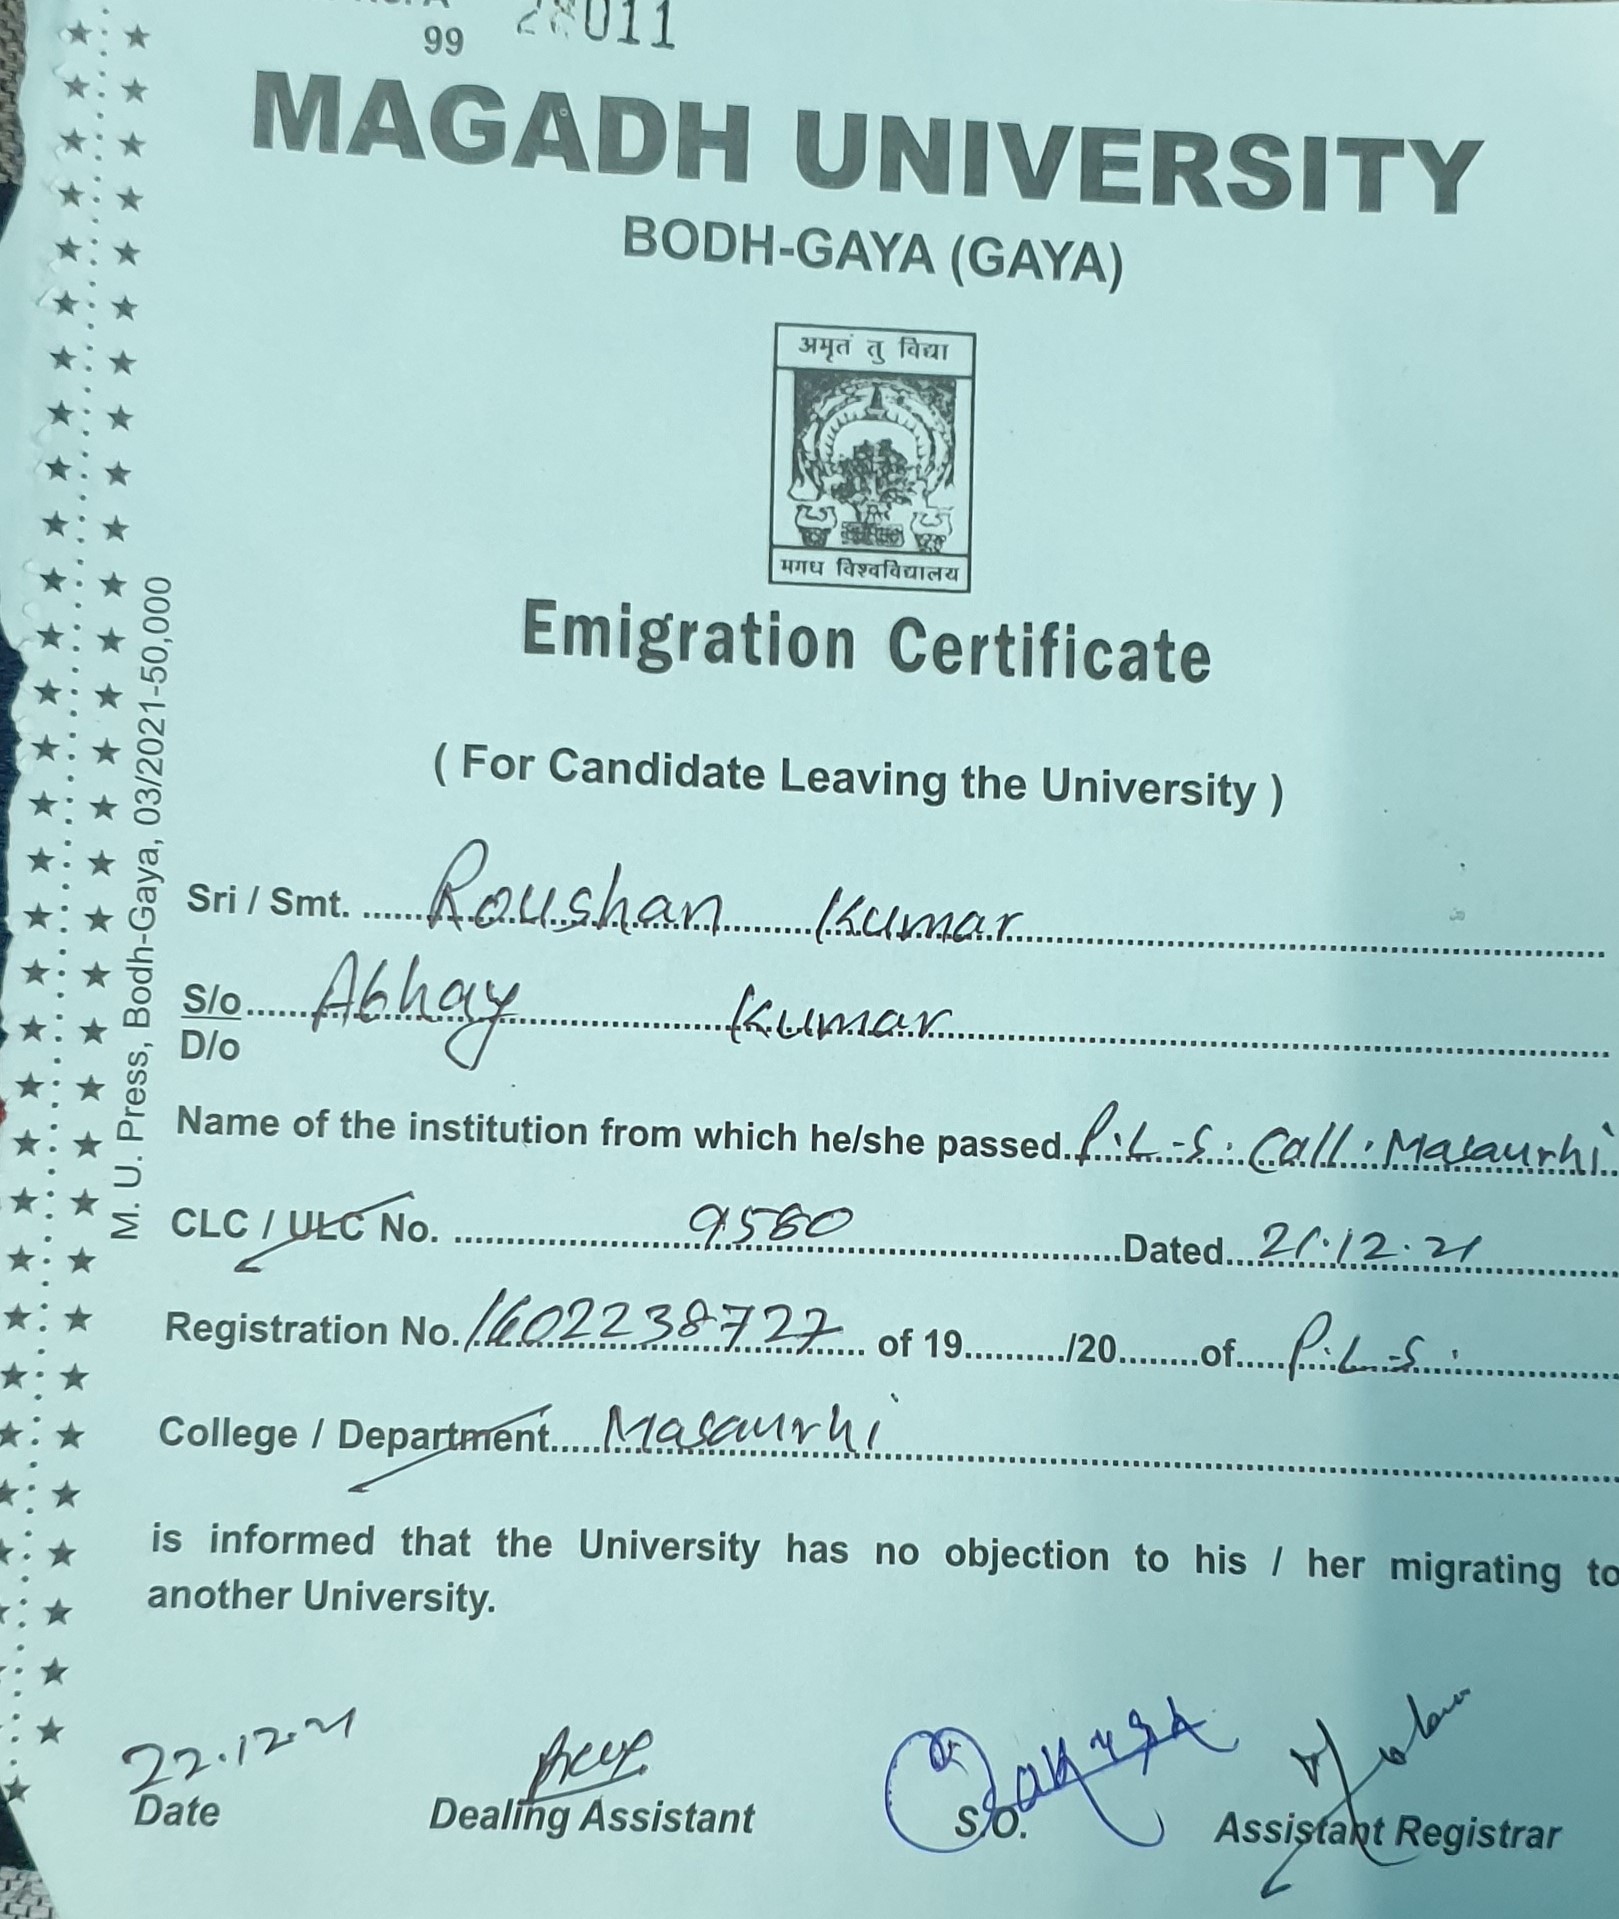 99
011
MAGADH UNIVERSITY
BODH-GAYA (GAYA)
अमृतं तु विद्या
मगध विश्वविद्यालय
Emigration Certificate
( For Candidate Leaving the University )
Sri / Smt. Roushan Kumar
S/o Abhay Kumar
D/o
Name of the institution from which he/she passed. P.L.S. Coll. Masaurhi
CLC / ULC No. 9560 Dated 21.12.21
Registration No. 1602238727 of 19........../20........of P.L.S.
College / Department Masaurhi
is informed that the University has no objection to his / her migrating to
another University.
22.12.21
Date
Dealing Assistant
S.O.
Assistant Registrar
M. U. Press, Bodh-Gaya, 03/2021-50,000